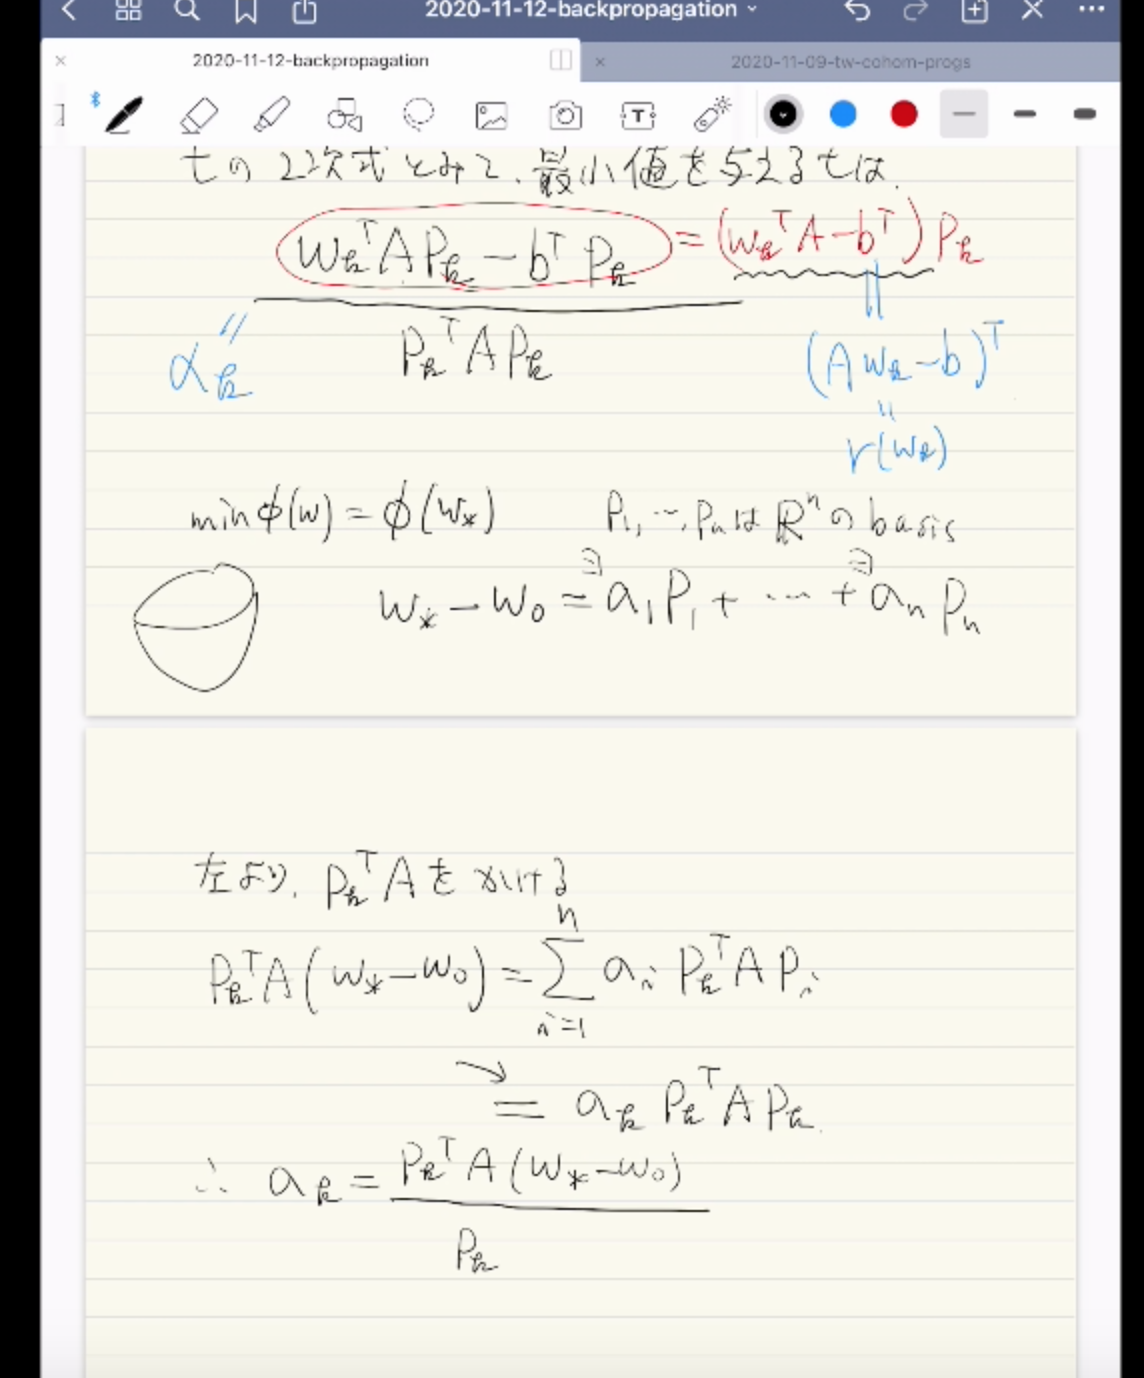 2020-11-12-backpropagation
2020-11-12-backpropagation
2020-11-09-tw-cohom-progs
T
tの2次式とみて、最小値を与えるtは、
w_k^T A P_k - b^T P_k = (w_k^T A - b^T) P_k
α_k = P_k^T A P_k
(A w_k - b)^T
=
r(w_k)
min φ(w) = φ(w_*)
P_1, ..., P_n は ℝ^n の basis
w_* - w_0 = ∃a_1 P_1 + ... + ∃a_n P_n
左より、P_k^T A を かける
P_k^T A (w_* - w_0) = Σ_{i=1}^n a_i P_k^T A P_i
↘ = a_k P_k^T A P_k.
∴ a_k = P_k^T A (w_* - w_0)
P_k